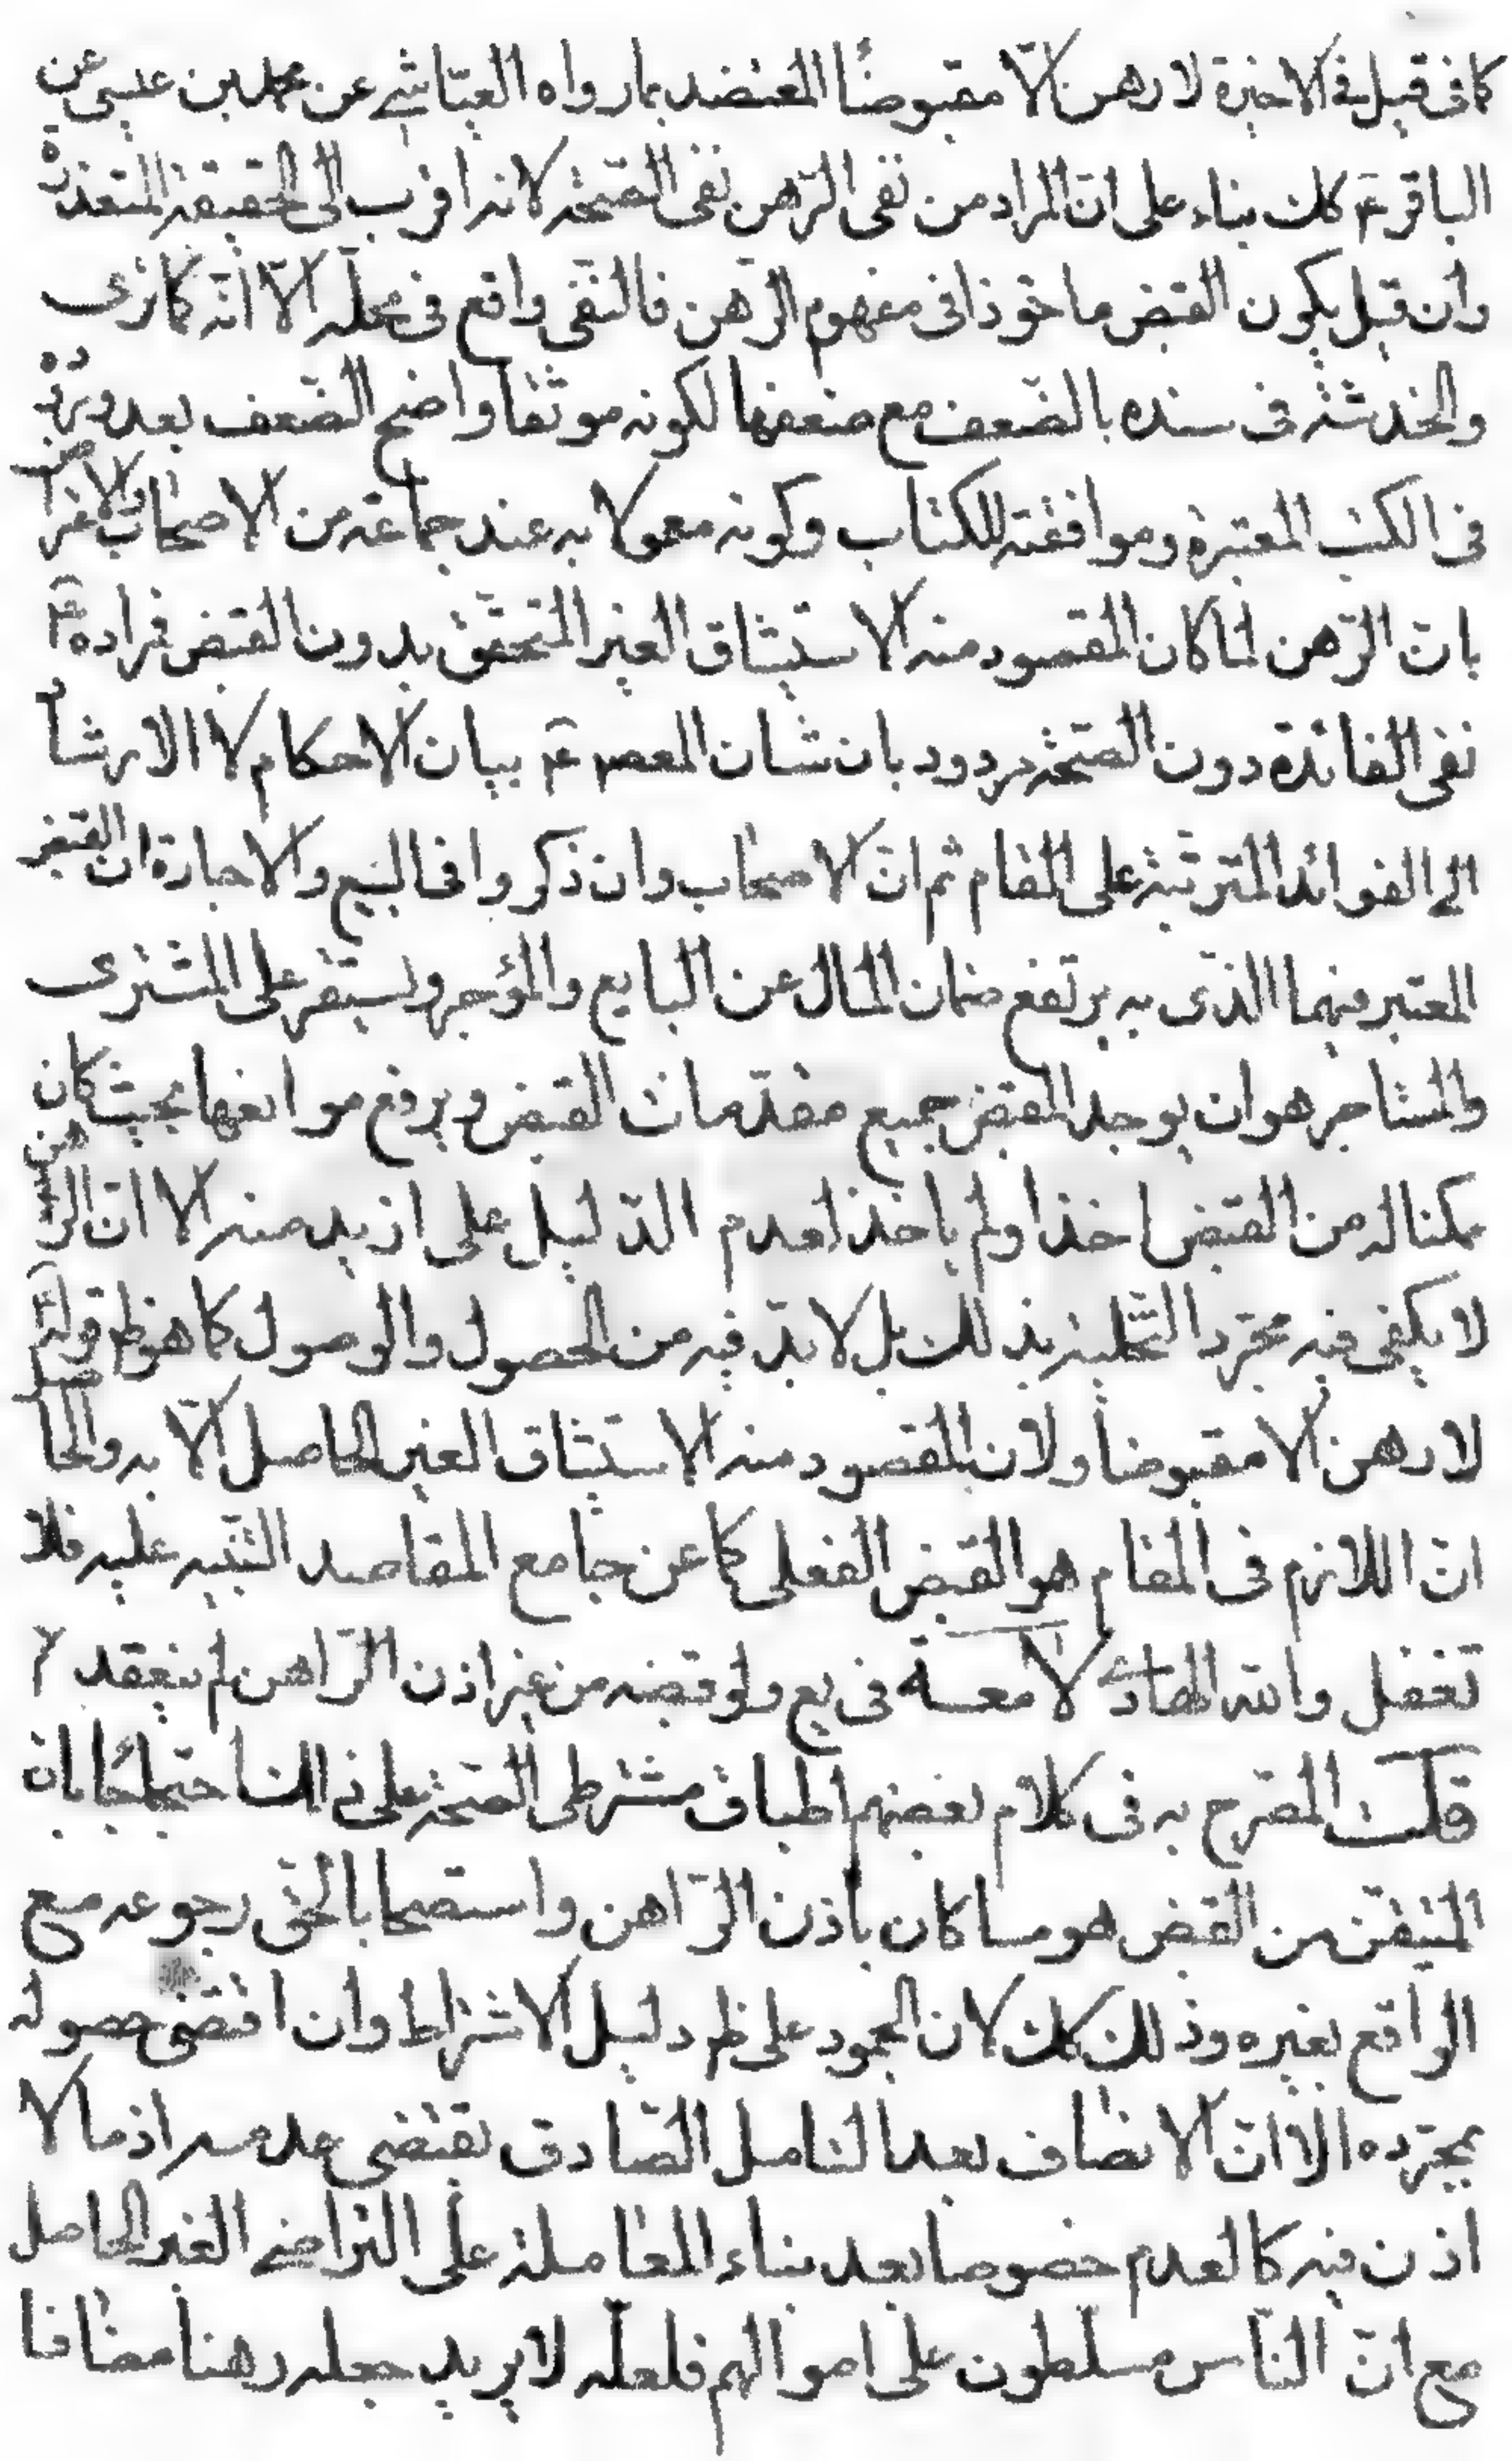 كما فى قبل فى الاخيرة لا رهن الّا مقبوضًا المعتضد بما رواه العيّاشى عن محمد بن عيسى عن
الباقر ع كك بناء على ان المراد من نفى الرّهن نفى الصّحة لانه اقرب الى الحقيقة المتعذرة
وان قيل بكون القبض ماخوذا فى مفهوم الرّهن فالنّفى واقع فى محلّه الّا انّه كما ترى
والخدشة فى سنده بالضّعف مع ضعفها لكونه موثقا واضح الضّعف بعد وروده
فى الكتب المعتبرة وموافقته للكتاب وكونه معمولا به عند جماعة من الاصحاب والاعتراض
بان الرّهن لمّا كان المقصود منه الاستيثاق الغير المتحقّق بدون القبض فمراده ع
نفى الفائدة دون الصّحّة مردود بان شان المعصوم ع بيان الاحكام لا الارشاد
الى الفوائد المترتّبة على المقام ثم انّ الاصحاب وان ذكروا فى البيع والاجارة ان القبض
المعتبر فيهما الذى به يرتفع ضمان المال عن البايع والمؤجر ويستقر على المشترى
والمستاجر هو ان يوجد المقبض جميع مقدّمات القبض ويرفع موانعها بحيث كان
ممكنا له من القبض اخذ او لم ياخذ لعدم الدّليل على ازيد منه الا انّ الرّهن
لا يكفى فيه مجرّد التّخلية بذلك بل لا بدّ فيه من الحصول والوصول كما هو ظ قوله ع
لا رهن الا مقبوضا ولان المقصود منه الاستيثاق الغير الحاصل الّا به والحاصل
انّ اللازم فى المقام هو القبض الفعلى كما عن جامع المقاصد التّنبيه عليه فلا
تغفل والله الهادى لامعة فى يع ولو قبضه من غير اذن الرّاهن لم ينعقد
قلت المصّرح به فى كلام بعضهم اطباق مشترطى الصّحة على ذلك احتجاجا بان
المتيقّن من القبض هو ما كان باذن الرّاهن واستصحابا لحق رجوعه مع
الواقع بغيره وذلك كك لان الجمود على ظ دليل الاشتراط وان اقتضى حصوله
بمجرّده الا انّ الانصاف بعد التامل الصّادق يقتضى عدمه اذ ما لا
اذن فيه كالعدم خصوصا بعد بناء المعاملة على التراضى الغير الحاصل
مع انّ النّاس مسلّطون على اموالهم فلعلّه لا يريد جعله رهنا مضافا